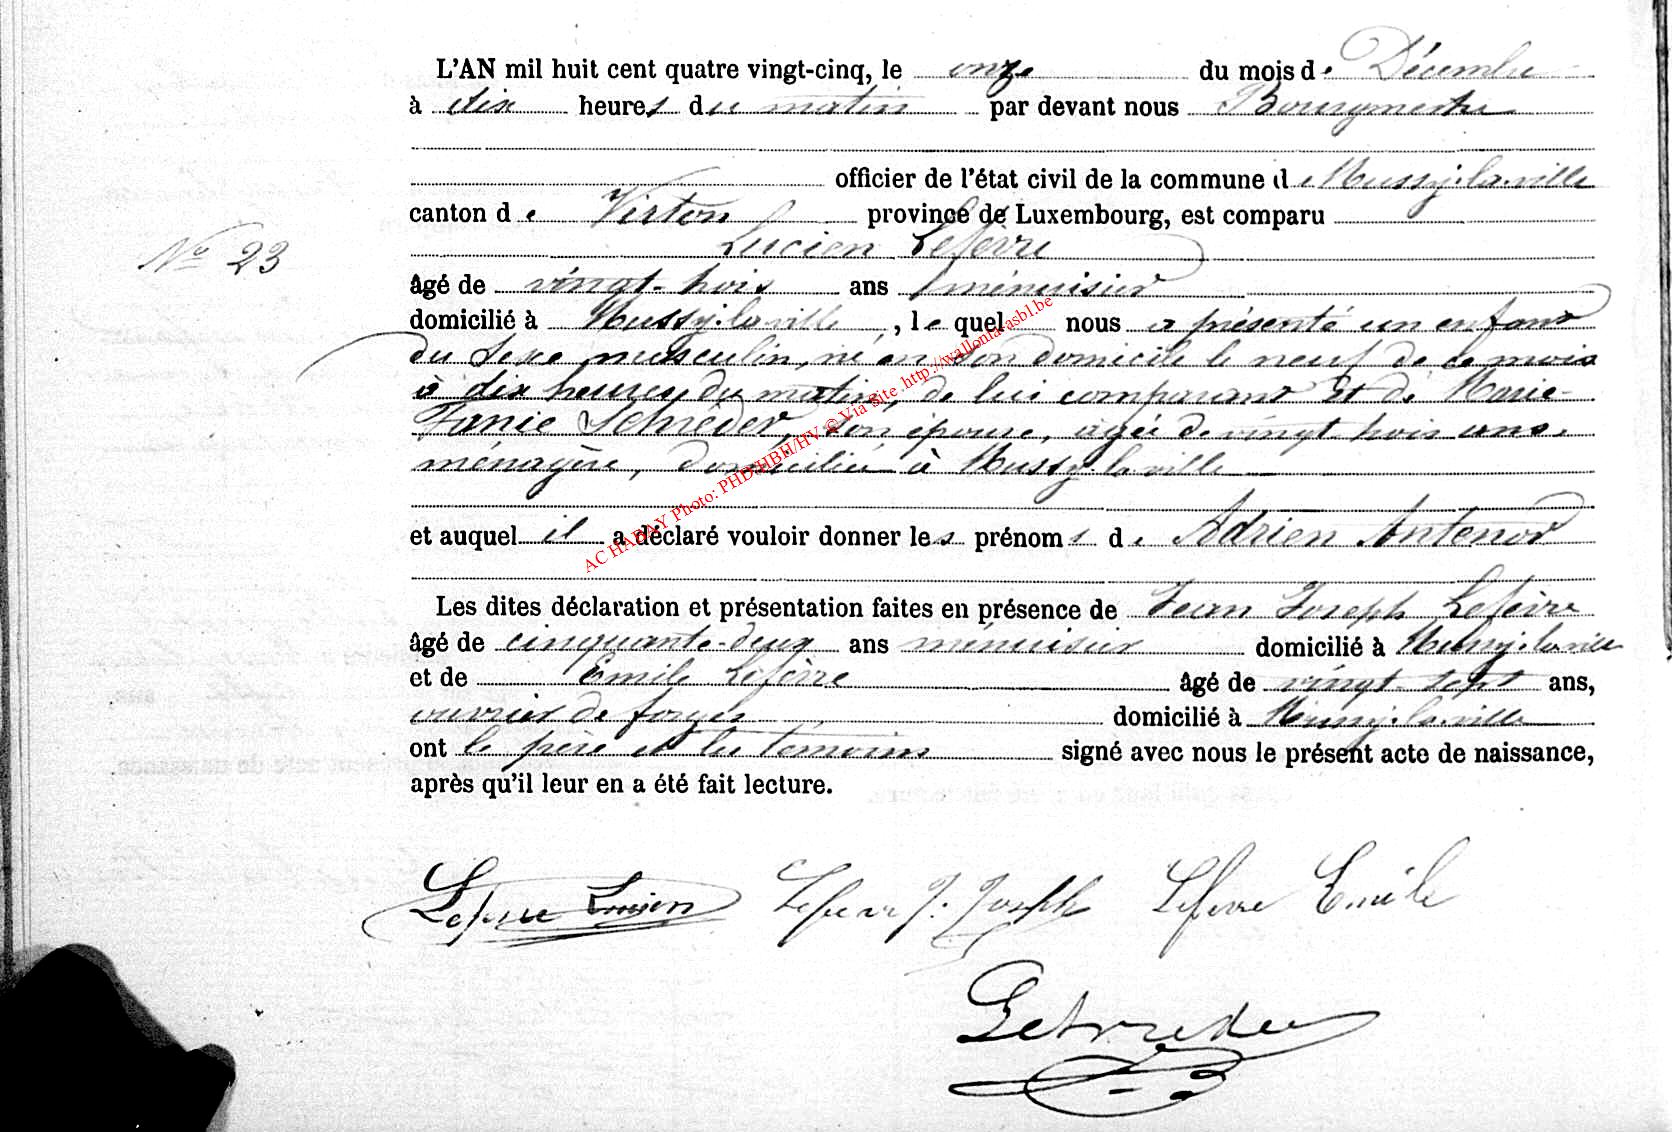 L'AN mil huit cent quatre vingt-cinq, le onze du mois de Décembre
à dix heures du matin par devant nous Bourgmestre
officier de l'état civil de la commune de Mussy-la-ville
canton de Virton province de Luxembourg, est comparu
Lucien Lefèvre
N° 23
âgé de vingt-trois ans menuisier
domicilié à Mussy-la-ville, lequel nous a présenté un enfant
du sexe masculin, né en son domicile le neuf de ce mois
à dix heures du matin, de lui comparant et de Marie-
Fanie Schrèder, son épouse, agée de vingt-trois ans,
ménagère, domiciliée à Mussy-la-ville
et auquel il a déclaré vouloir donner les prénoms de Adrien Antenor
Les dites déclaration et présentation faites en présence de Jean Joseph Lefèvre
âgé de cinquante-deux ans menuisier domicilié à Mussy-la-ville
et de Emile Lefèvre âgé de vingt-sept ans,
ouvrier de forges domicilié à Mussy-la-ville
ont le père et les témoins signé avec nous le présent acte de naissance,
après qu'il leur en a été fait lecture.
Lefevre Lucien Lefevre J. Joseph Lefevre Emile
AC HABAY Photo: PHD/HBH/HV © Via Site .http://wallonia-asbl.be